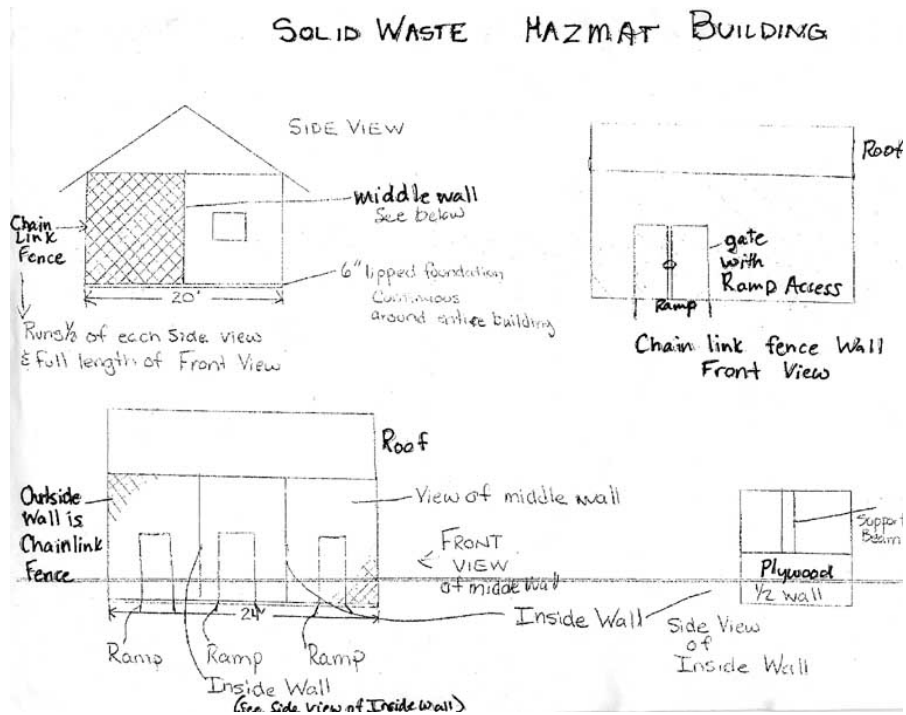 SOLID WASTE HAZMAT BUILDING
SIDE VIEW
Chain
Link
Fence
middle wall
See below
6" lipped foundation
Continuous
around entire building
20'
Runs 1/2 of each Side view
& full length of Front View
Roof
gate
with
Ramp Access
Ramp
Chain link fence Wall
Front View
Roof
Outside
Wall is
Chainlink
Fence
View of middle wall
FRONT
VIEW
of middle Wall
24'
Ramp
Ramp
Ramp
Inside Wall
Inside Wall
(See Side view of Inside wall)
Support
Beam
Plywood
1/2 wall
Side View
of
Inside Wall